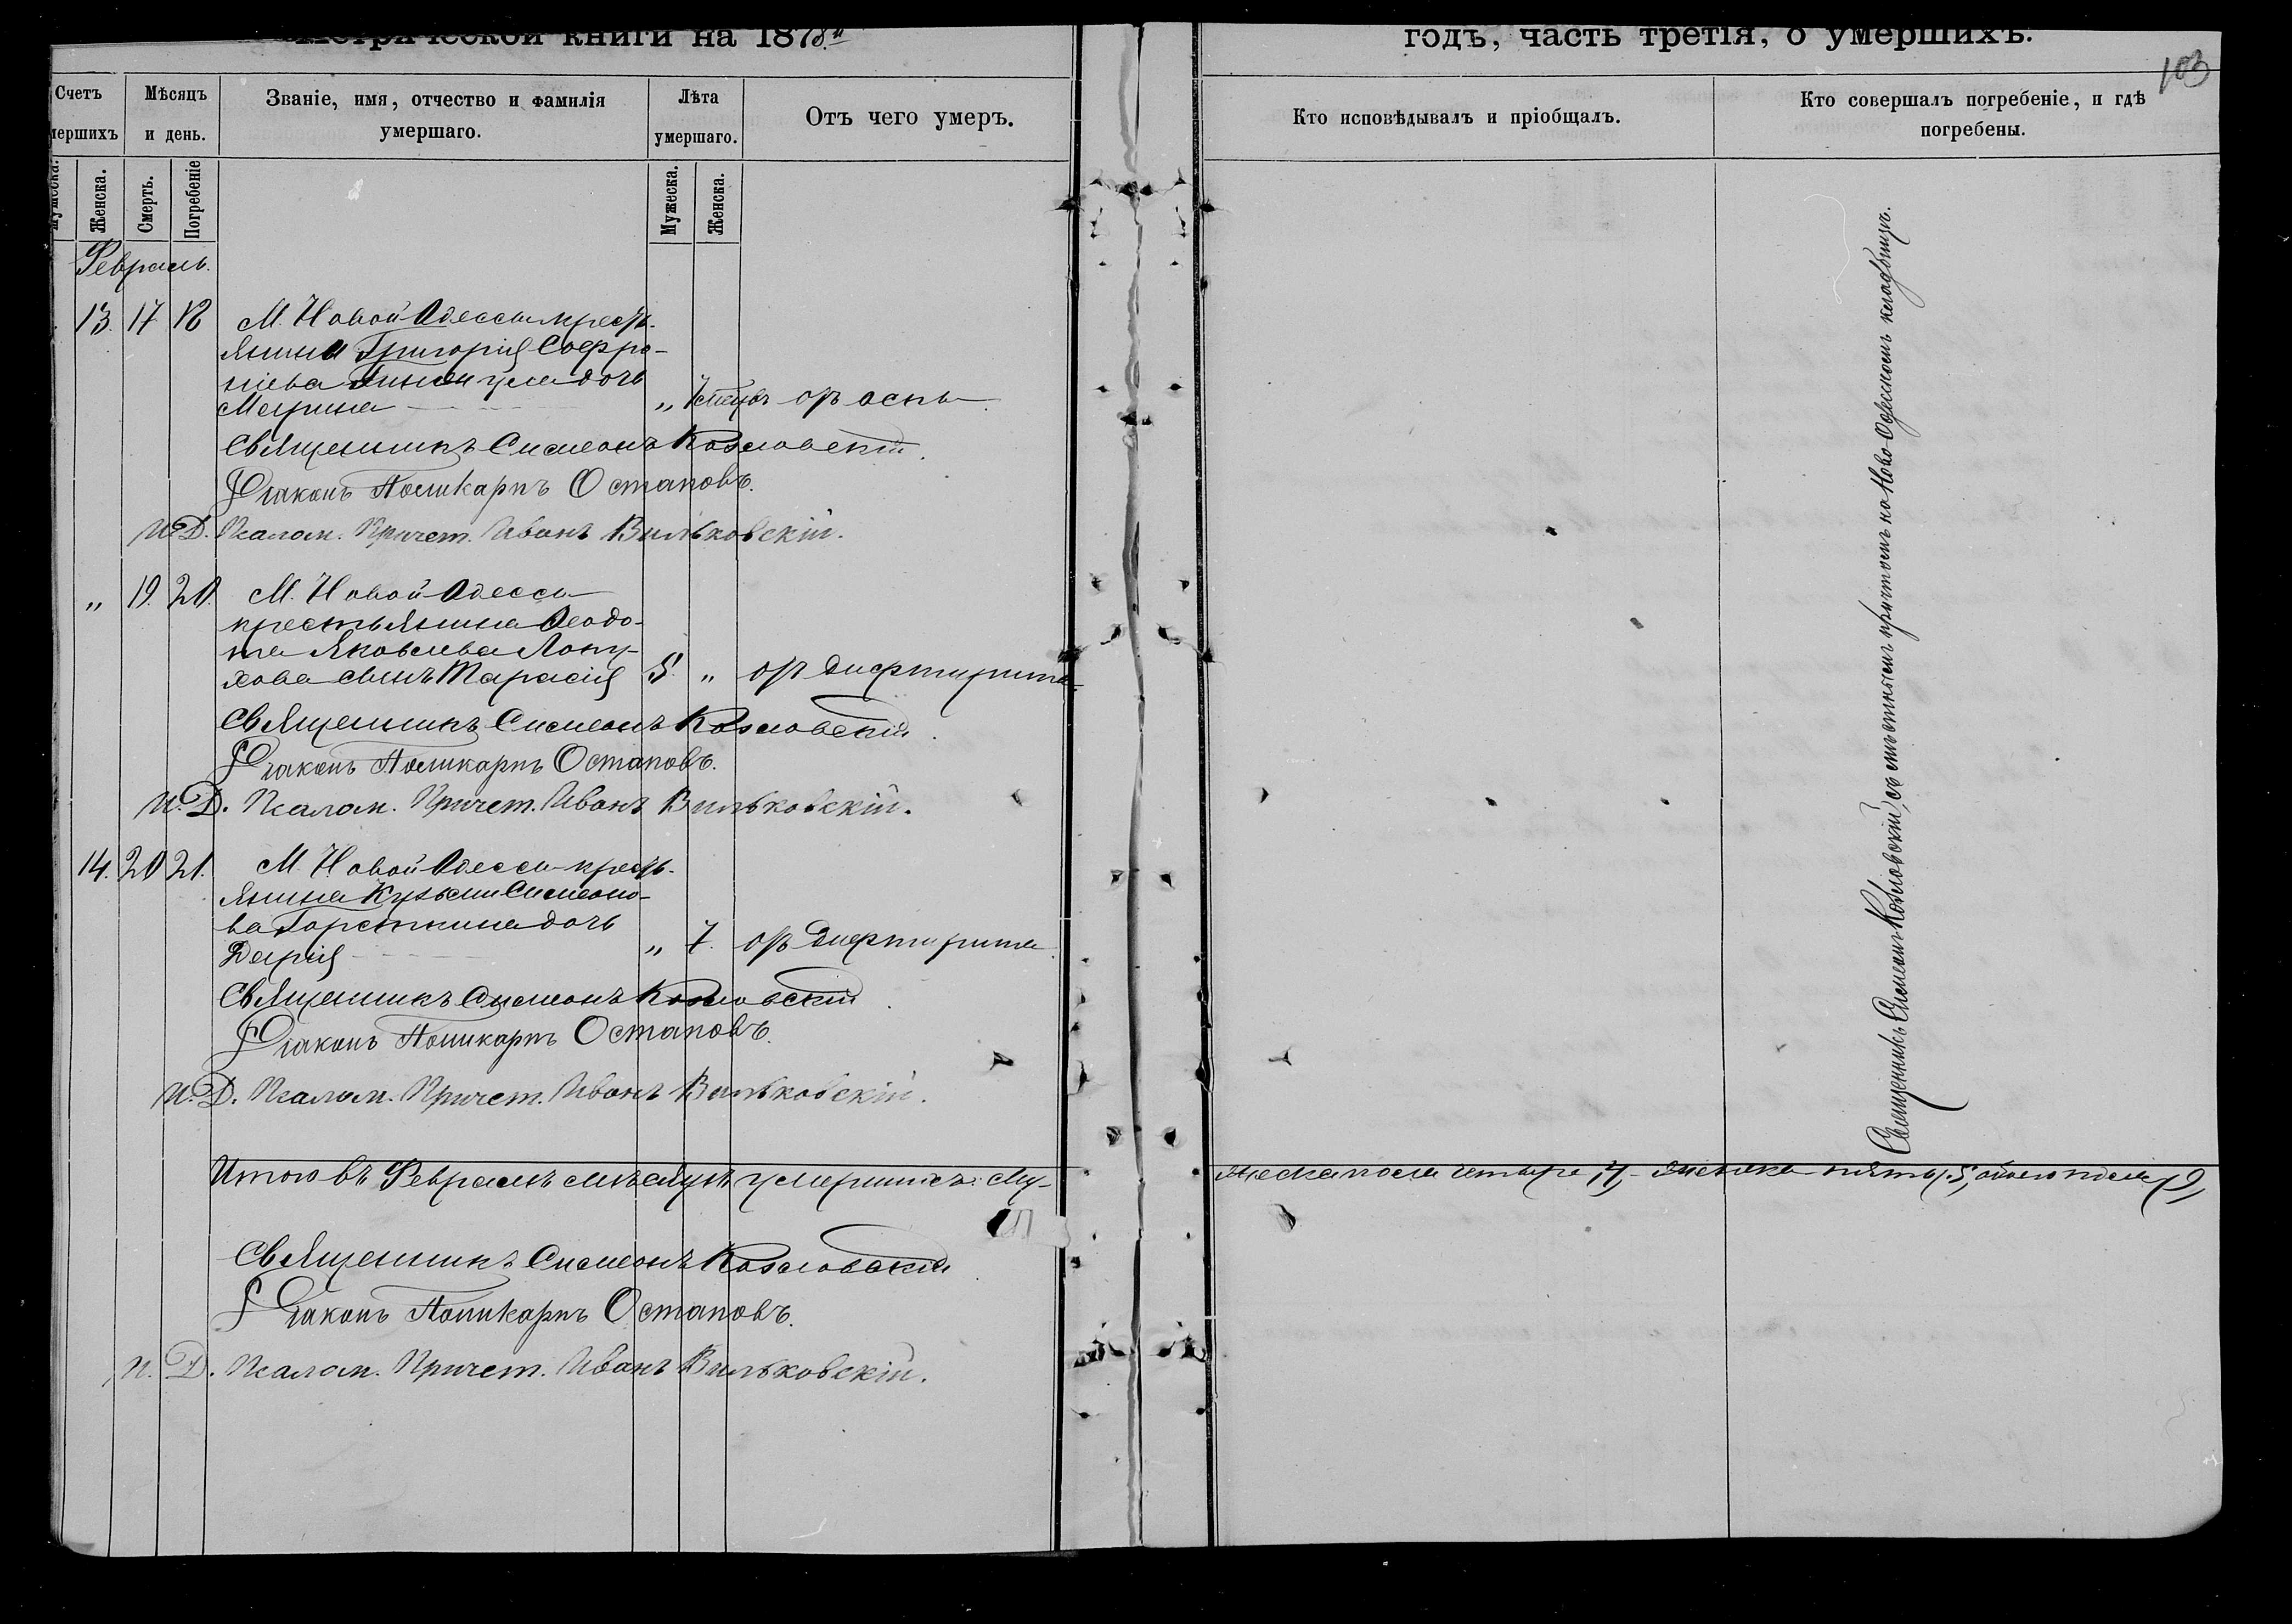 Метрической книги на 1878й
годъ, часть третія, о умершихъ.
103
Счетъ умершихъ
Мѣсяцъ и день.
Званіе, имя, отчество и фамилія умершаго.
Лѣта умершаго.
Отъ чего умеръ.
Кто исповѣдывалъ и пріобщалъ.
Кто совершалъ погребеніе, и гдѣ погребены.
Мужеска. Женска. Смерть. Погребеніе
Мужеска. Женска.
Февраль.
13. 17 18 М. Новой Одессы кресть-
янина Григорія Софро-
ніева дочь
Марина „ отъ оспы
Священникъ Симеонъ Козловскій.
Діаконъ Поликарпъ Остаповъ.
И. Д. Псалом. Причет. Иванъ Вильковскій.
„ 19. 20. М. Новой Одессы
крестьянина Ѳеодо-
та Яковлева Лопу-
хова сынъ Тарасій 5. „ отъ дифтирита
Священникъ Симеонъ Козловскій.
Діаконъ Поликарпъ Остаповъ.
И. Д. Псалом. Причет. Иванъ Вильковскій.
14. 20 21. М. Новой Одессы кресть-
янина Кузьмы Симеоно-
ва дочь
Дарія „ 7. отъ дифтирита
Священникъ Симеонъ Козловскій.
Діаконъ Поликарпъ Остаповъ.
И. Д. Псалом. Причет. Иванъ Вильковскій.
Священникъ Симеонъ Козловскій, съ мѣстнымъ причтомъ на Ново-Одесскомъ кладбищѣ.
Итого въ Февралѣ мѣсяцѣ умершихъ: му-
жеска пола четыре, 4, женска пять, 5, обоего пола, 9,
Священникъ Симеонъ Козловскій
Діаконъ Поликарпъ Остаповъ.
И. Д. Псалом. Причет. Иванъ Вильковскій.